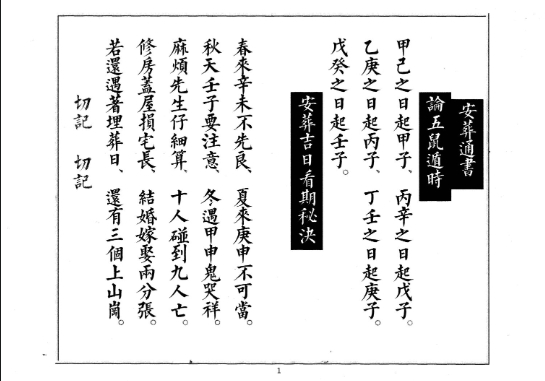 安葬通書
論五鼠遁時
甲己之日起甲子、丙辛之日起戊子。
乙庚之日起丙子、丁壬之日起庚子。
戊癸之日起壬子。
安葬吉日看期秘決
春來辛未不先良、夏來庚申不可當。
秋天壬子要注意、冬遇甲申鬼哭祥。
麻煩先生仔細算、十人碰到九人亡。
修房蓋屋損宅長、結婚嫁娶兩分張。
若還遇著埋葬日、還有三個上山崗。
切記 切記
1